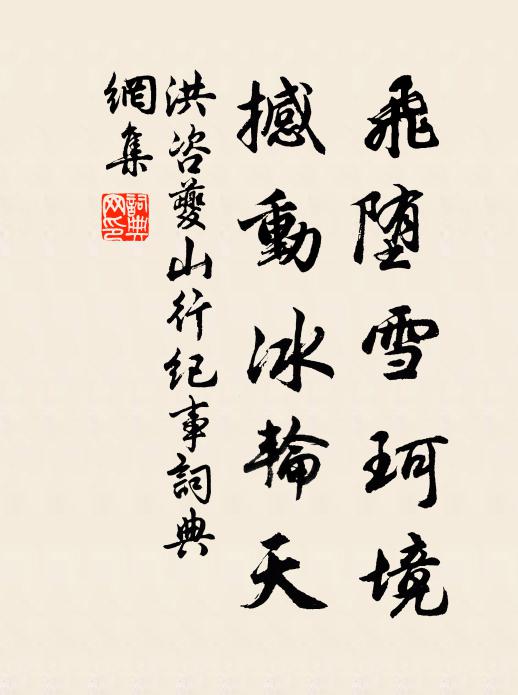 飛墮雪珂境
撼動冰輪天
洪咨夔山行紀事詞典
網集
詞典網印